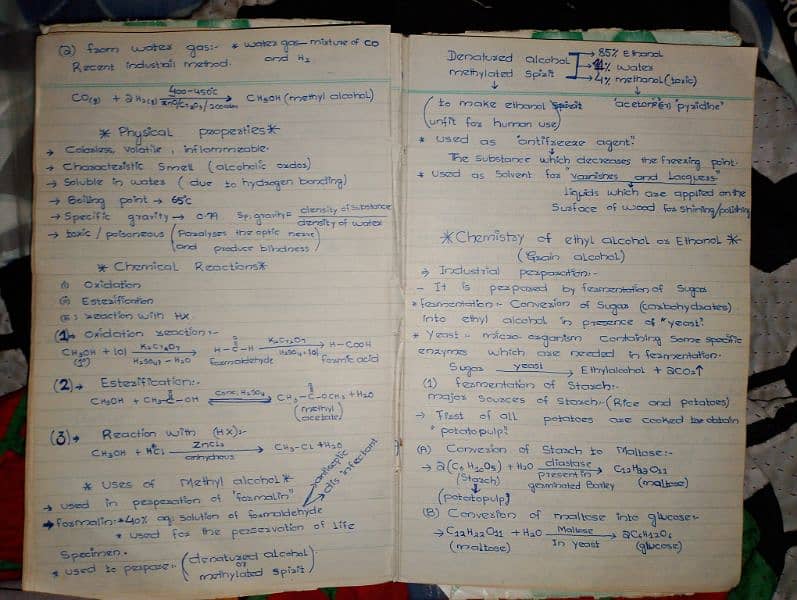 (2) from water gas:- * water gas— mixture of CO
and H₂
Recent industrail method.
CO(g) + 2H₂(g) 400-450°C ZnO/Cr₂O₃/200atm → CH₃OH (methyl alcohol)
* Physical properties *
→ Colorless, volatile, inflammeable.
→ Characteristic Smell (alcoholic ordor)
→ Soluble in water (due to hydrogen bonding)
→ Boiling point → 65°C
→ Specific gravity → 0.79 Sp. gravity = density of Substance / density of water
→ toxic / poisoneous (Paralyses the optic nerve
and produce blindness)
* Chemical Reactions *
(i) Oxidation
(ii) Esterification
: reaction with HX.
(1)→ Oxidation reaction:-
CH₃OH + [O] K₂Cr₂O₇ H₂SO₄, -H₂O → H-C-H O K₂Cr₂O₇ H₂SO₄, [O] → H-COOH
(1°) Formaldehyde formic acid
(2)→ Esterification:-
CH₃OH + CH₃-C-OH O Conc. H₂SO₄ ⇌ CH₃-C-OCH₃ + H₂O O
(methyl
acetate)
(3)→ Reaction with (HX):-
CH₃OH + HCl ZnCl₂ anhydrous → CH₃-Cl + H₂O
* Uses of Methyl alcohol *
→ used in perperation of "formalin"
antiseptic
dis infectant
→ formalin:→ 40% aq. Solution of formaldehyde
* used for the perservation of life
Specimen.
* used to perpare:- (denatured alcohol
or
methylated spirit)
Denatured alcohol → 85% Ethanol
→ 11% water
methylated Spirit → 4% methanol (toxic)
'acetone' (or) 'pyridine'
(to make ethanol
unfit for human use)
* used as "antifreeze agent".
The substance which decreases the freezing point.
* used as Solvent for "Varnishes and Lacquers"
liquids which are applied on the
Surface of wood for shining/polishing
* Chemistry of ethyl alcohol or Ethanol *
(Grain alcohol)
→ Industrial perparation:-
- It is perpared by fermentation of Sugar
* fermentation:- Conversion of Sugar (carbohydrates)
into ethyl alcohol in presence of "yeast".
* Yeast:- micro-organism Containing Some Specific
enzymes which are needed in fermentation.
Sugar yeast → Ethylalcohol + 2CO₂↑
(1) fermentation of Starch:-
major Sources of Starch:- (Rice and potatoes)
→ First of all potatoes are cooked to obtain
"potatopulp".
(A) Conversion of Starch to Maltose:-
→ 2(C₆H₁₀O₅) + H₂O diastase present in → C₁₂H₂₂O₁₁
(Starch) germinated Barley (maltose)
(potatopulp)
(B) Conversion of maltose into glucose:-
→ C₁₂H₂₂O₁₁ + H₂O Maltase In yeast → 2C₆H₁₂O₆
(maltose) (glucose)